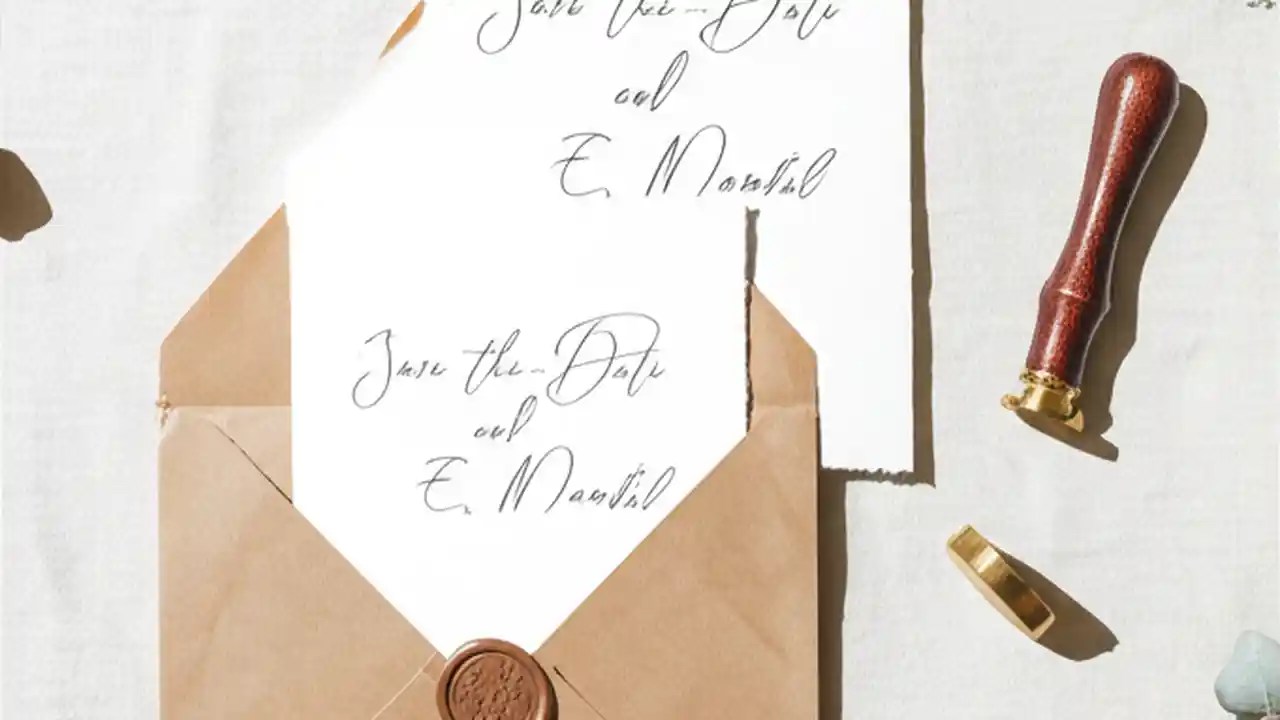 Save the Date
and
E. 
Save the Date
and
E.